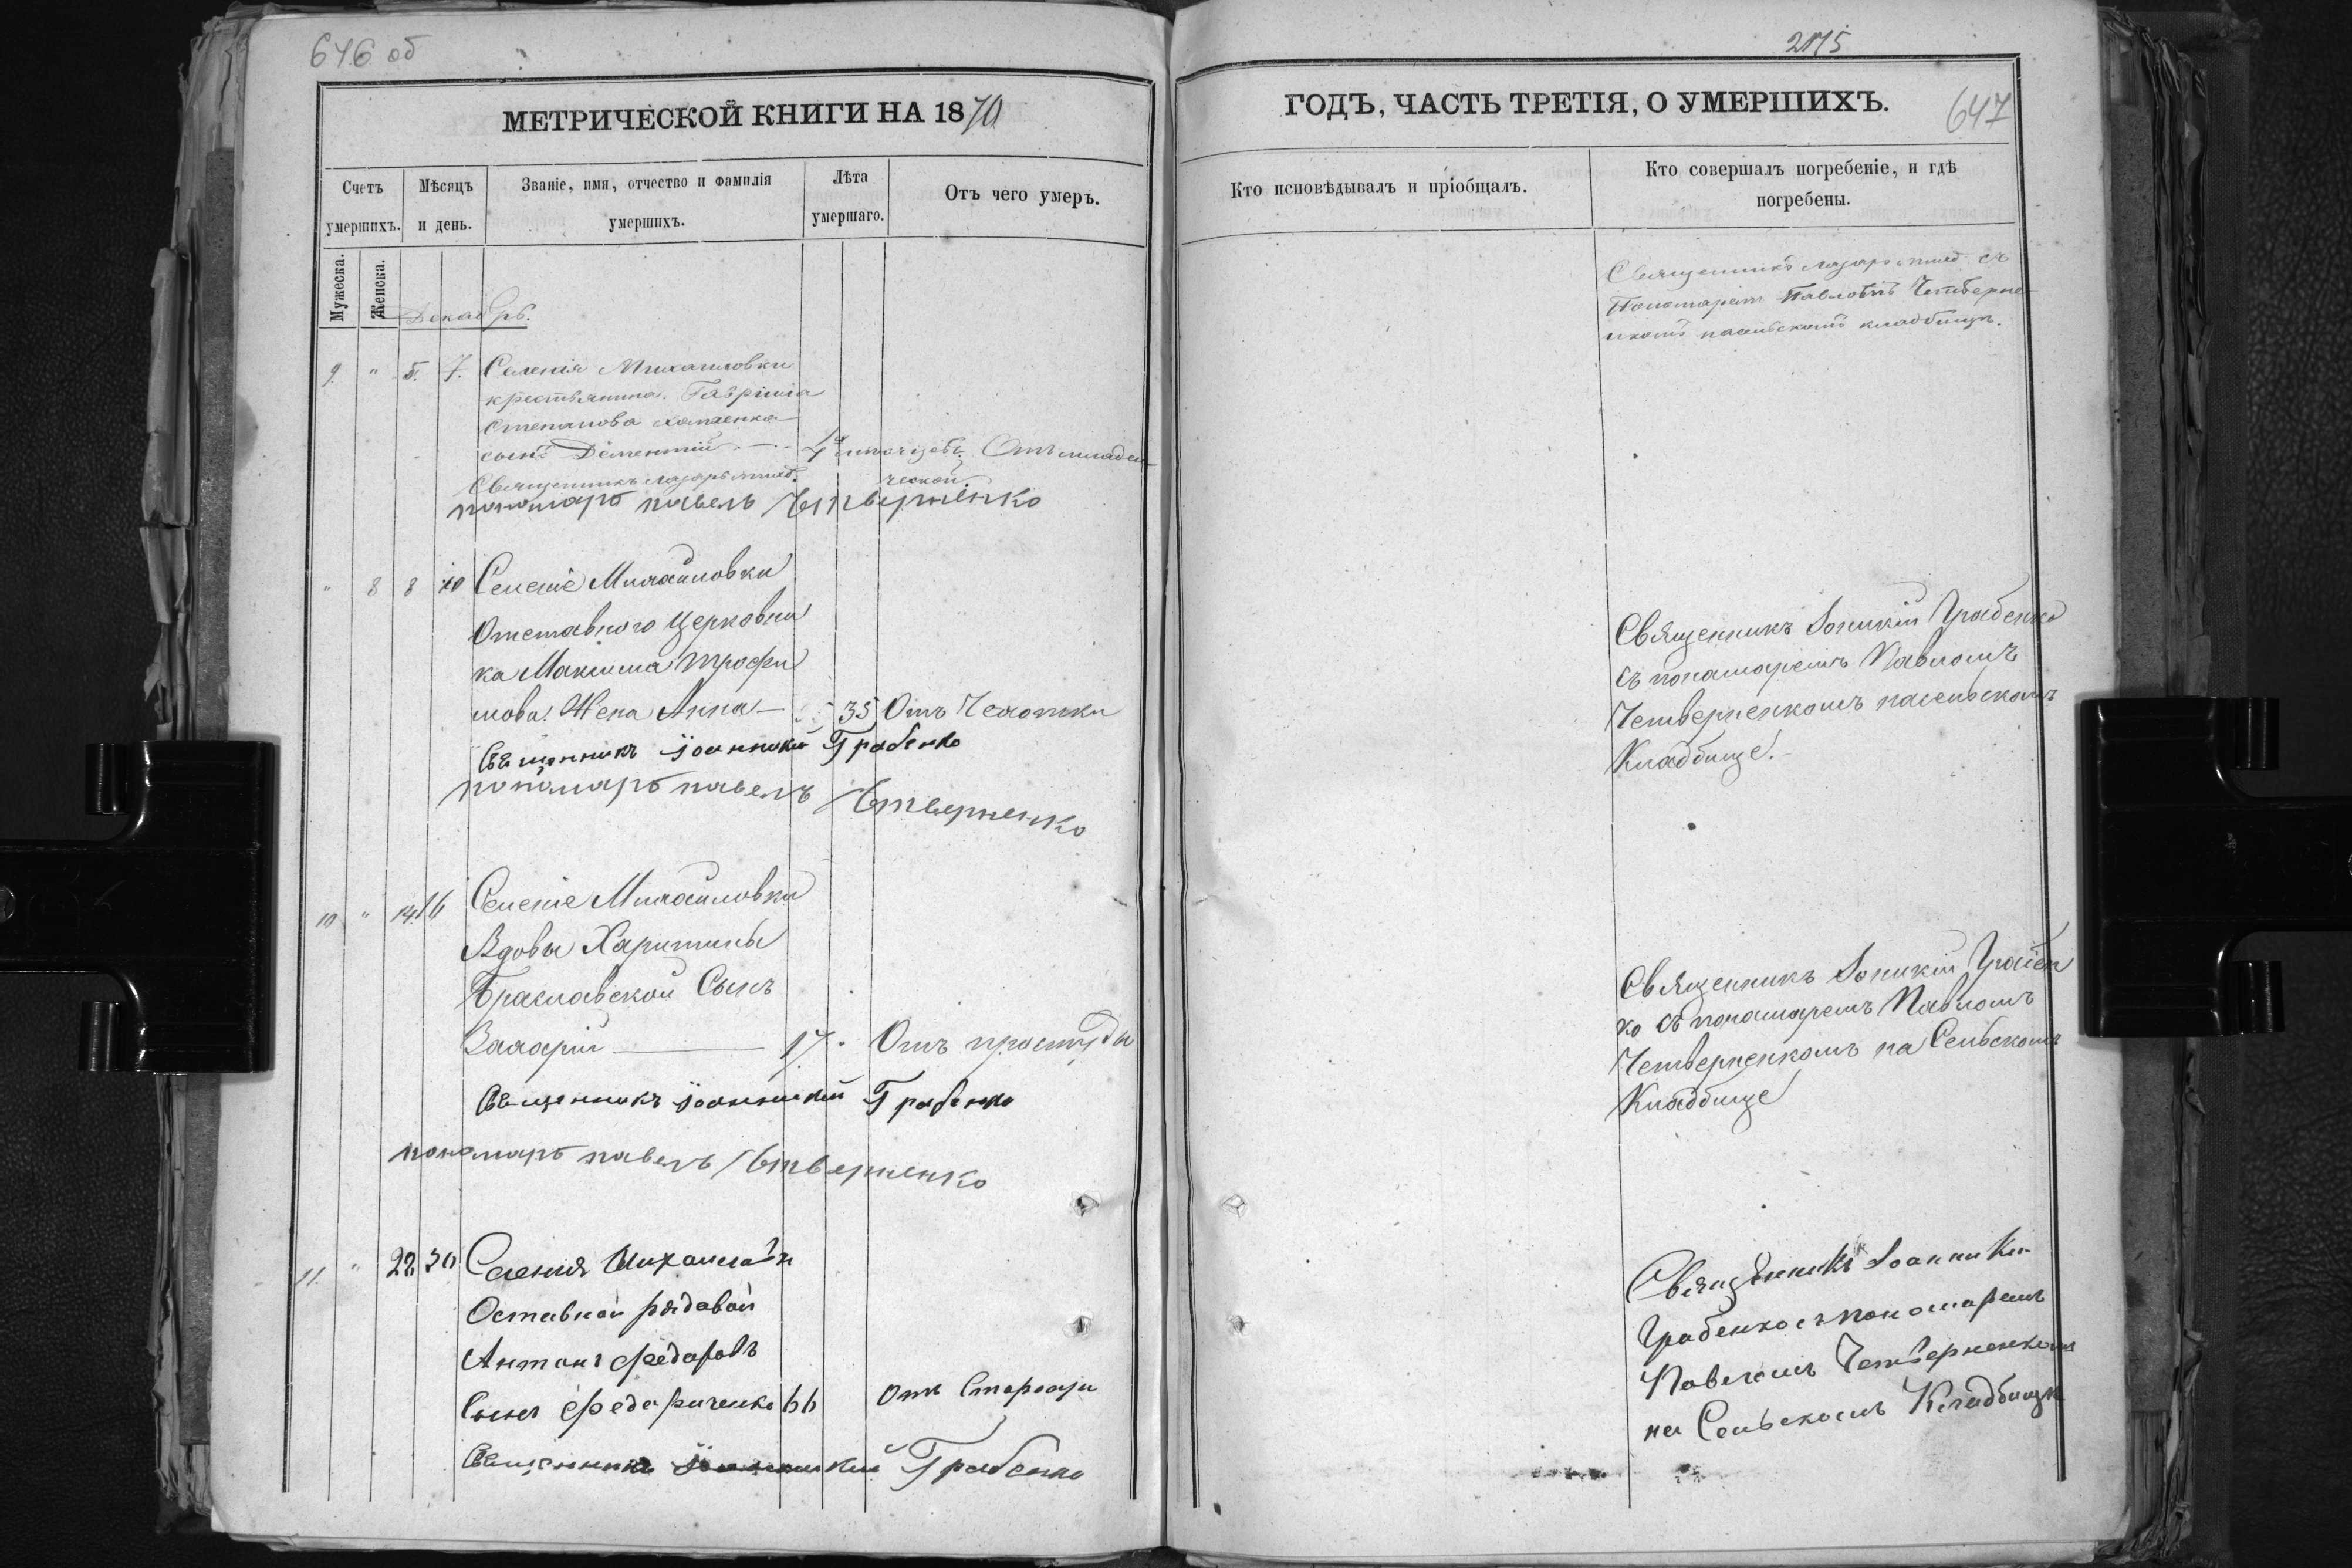 646 об
МЕТРИЧЕСКОЙ КНИГИ НА 1870
Счетъ умершихъ.
Мѣсяцъ и день.
Званіе, имя, отчество и фамилія умершихъ.
Лѣта умершаго.
Отъ чего умеръ.
Мужеска.
Женска.
Декабрь.
9. " 5. 7. Селенія Михайловки
крестьянина Гавріила
Степанова
сынъ Дементій 4 Отъ младен
Священникъ Лазарь ческой.
пономарь павелъ Четверненко
" 8 8 10 Селеніе Михайловки
Отставного Церковни
ка Максима Трофи
мова Жена Анна — 35 Отъ Чахотки
Священникъ Іоанникій Грабенко
пономарь павелъ Четверненко
10 " 14 16 Селеніе Михайловки
Вдовы Харитины
Браславской Сынъ
Захарій — 17. Отъ простуды
Священникъ Іоанникій Грабенко
пономарь павелъ Четверненко
11. " 28 30 Селенія Михайловки
Оставной рядавой
Антонъ Федаровъ
Сынъ Федариченко 66 Отъ Старости
Священникъ Іоанникій Грабенко
2175
ГОДЪ, ЧАСТЬ ТРЕТІЯ, О УМЕРШИХЪ.
647
Кто исповѣдывалъ и пріобщалъ.
Кто совершалъ погребеніе, и гдѣ
погребены.
Священникъ Лазарь съ
Пономарем Павломъ Четверне
нкомъ насельскомъ кладбищѣ.
Священникъ Іоникій Грабенко
съ понамаремъ Павломъ
Четверненкомъ насельскомъ
Кладбище.
Священникъ Іоникій Грабен
ко съ понамаремъ Павломъ
Четверненкомъ на Сельскомъ
Кладбище
Священникъ Іоанники
Грабенко съ пономаремъ
Павеломъ Четверненкомъ
на Сельскомъ Кладбищѣ